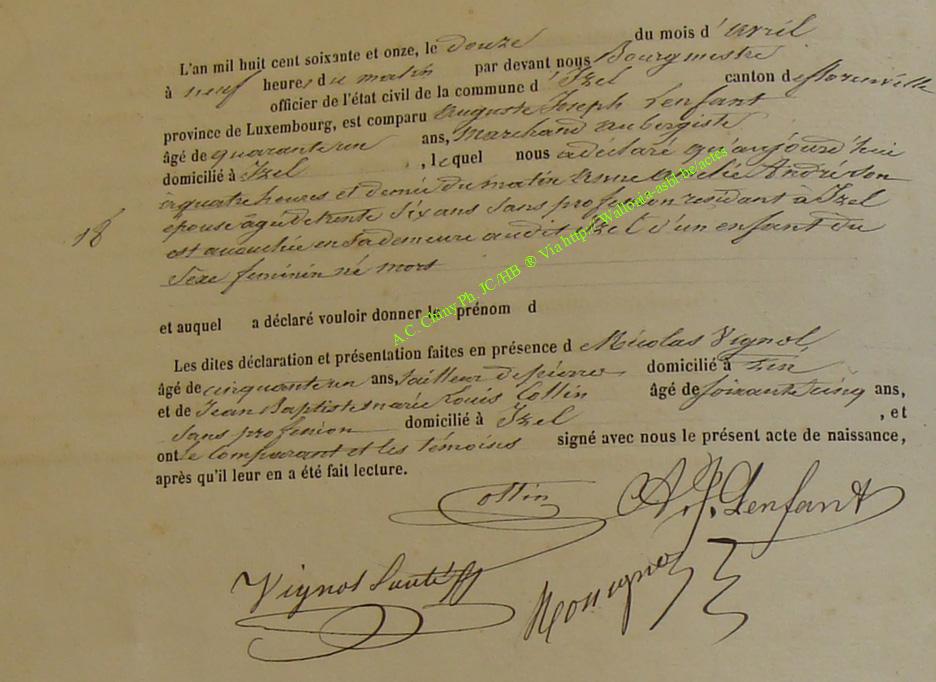 L'an mil huit cent soixante et onze, le douze du mois d'avril
à neuf heures du matin par devant nous Bourgmestre
officier de l'état civil de la commune d'Izel canton de florenville
province de Luxembourg, est comparu Auguste Joseph Lenfant
âgé de quarante un ans, marchand aubergiste
domicilié à Izel, lequel nous a déclaré qu'aujourd'hui
à quatre heures et demie du matin Anne Amélie André son
épouse âgée de trente six ans sans profession résidant à Izel
18
est accouchée en sa demeure audit Izel d'un enfant du
sexe feminin né mort
et auquel a déclaré vouloir donner le prénom d
Les dites déclaration et présentation faites en présence de Nicolas Vignol
âgé de cinquante un ans, tailleur de pierres domicilié à
et de Jean Baptiste marie Louis Collin âgé de soixante cinq ans,
sans profession domicilié à Izel, et
ont le comparant et les témoins signé avec nous le présent acte de naissance,
après qu'il leur en a été fait lecture.
Collin A.J. Lenfant
Vignol
A.C. Chiny Ph. JC /HB ® Via http://Wallonia-asbl-be/actes